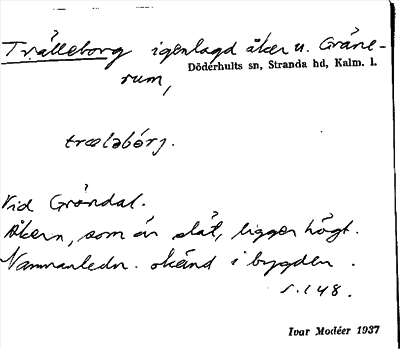 Trälleborg igenlagd åker u. Gråne-
Döderhults sn, Stranda hd, Kalm. l.
rum,
trælǝbórj.
Vid Gröndal.
Åkern, som är slät, ligger högt.
Namnanledn. okänd i bygden.
s. 148.
Ivar Modéer 1937